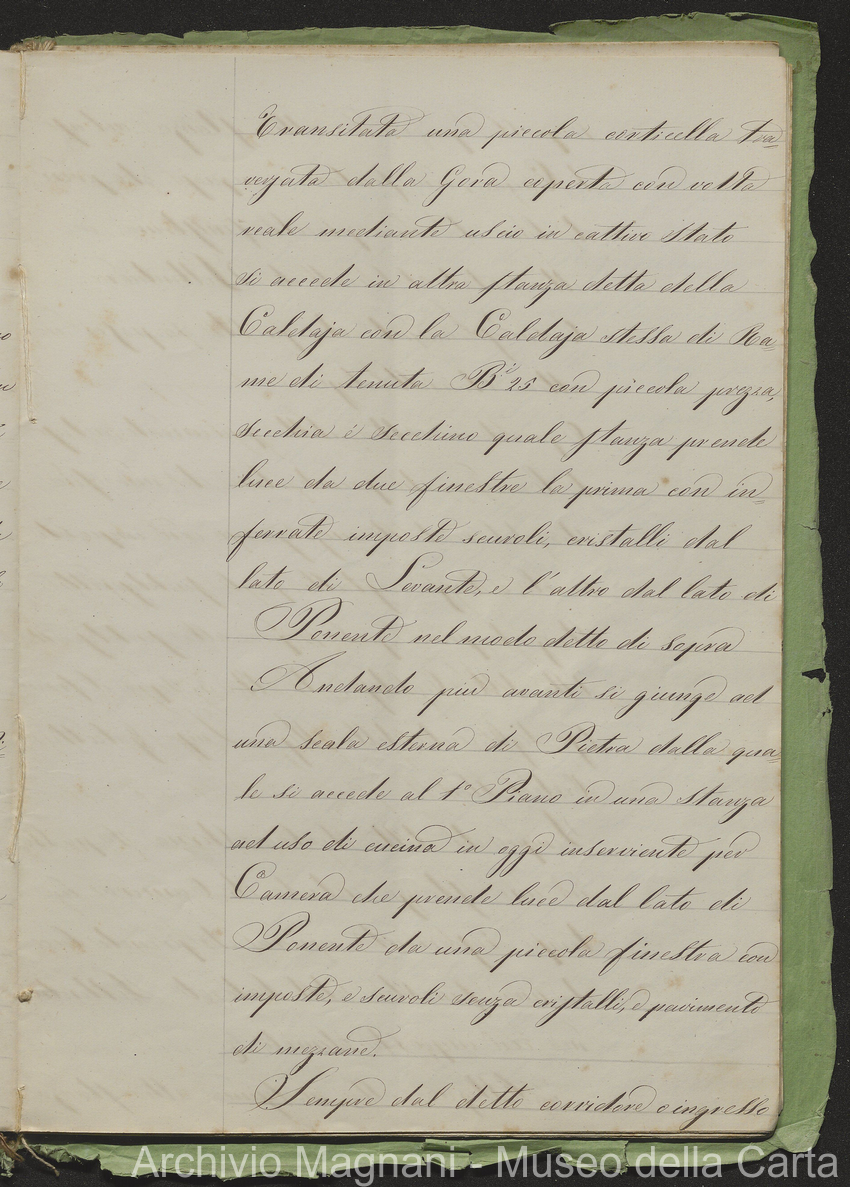 Transitata una piccola corticella tra=
versata dalla Gora coperta con volta
reale mediante uscio in cattivo stato
si accede in altra stanza detta della
Caldaja con la Caldaja stessa di Ra=
me di tenuta B.i 25 con piccola prezza,
secchia e secchino quale stanza prende
luce da due finestre la prima con in=
ferrate imposte scuroli, cristalli dal
lato di Levante, e l'altro dal lato di
Ponente nel modo detto di sopra
Andando più avanti si giunge ad
una scala esterna di Pietra dalla qua=
le si accede al 1° Piano in una stanza
ad uso di cucina in oggi inserviente per
Camera che prende luce dal lato di
Ponente da una piccola finestra con
imposte, e scuroli senza cristalli, e pavimento
di mezzane.
Sempre dal detto corridore o ingresso
Archivio Magnani - Museo della Carta